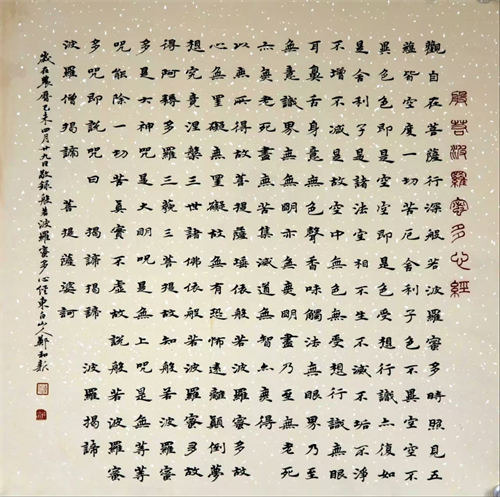 般若波羅蜜多心經
觀自在菩薩行深般若波羅蜜多時照見五
蘊皆空度一切苦厄舍利子色不異空空不
異色色即是空空即是色受想行識亦復如
是舍利子是諸法空相不生不滅不垢不淨
不增不減是故空中無色無受想行識無眼
耳鼻舌身意無色聲香味觸法無眼界乃至
無意識界無無明亦無無明盡乃至無老死
亦無老死盡無苦集滅道無智亦無得
以無所得故菩提薩埵依般若波羅蜜多故
心無罣礙無罣礙故無有恐怖遠離顛倒夢
想究竟涅槃三世諸佛依般若波羅蜜多故
得阿耨多羅三藐三菩提故知般若波羅蜜
多是大神呪是大明呪是無上呪是無等等
呪能除一切苦真實不虛故說般若波羅蜜
多呪即說呪曰 揭諦揭諦 波羅揭諦
波羅僧揭諦 菩提薩婆訶
歲在農曆乙未四月廿九日敬錄般若波羅蜜多心經東白山人鄭和新